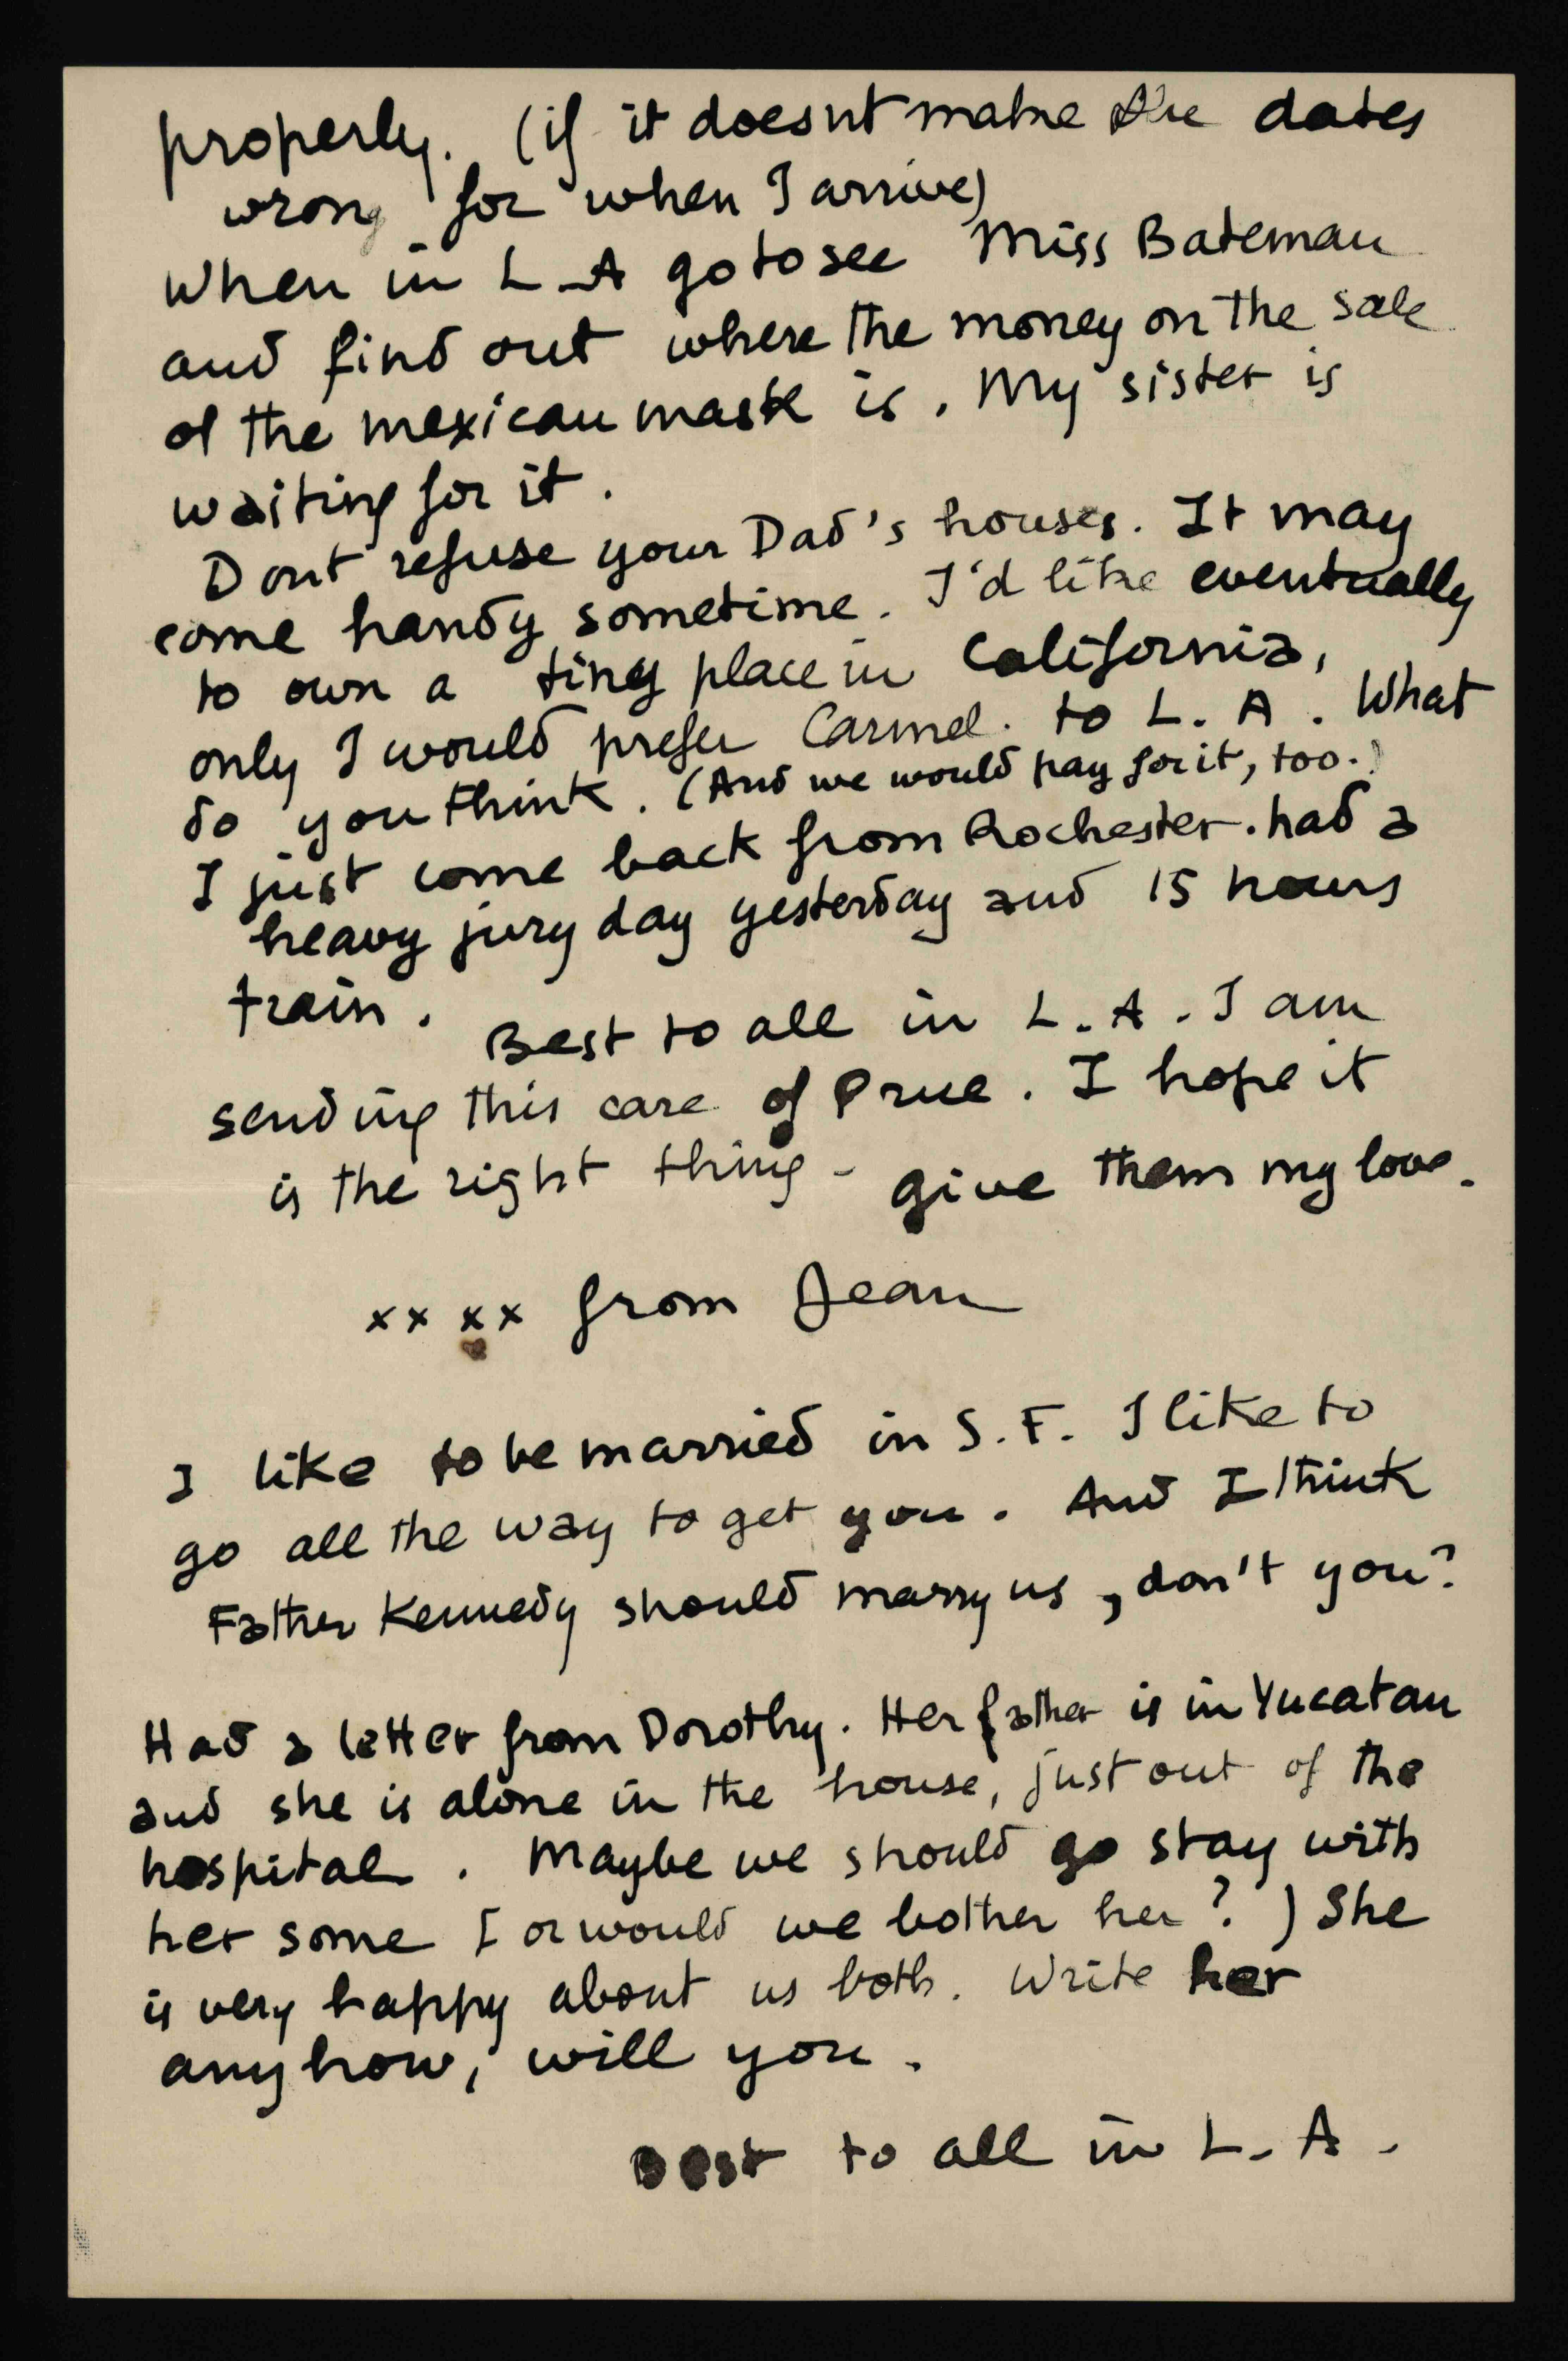 properly. (if it doesnt make the dates
wrong for when I arrive)
When in L.A go to see Miss Bateman
and find out where the money on the sale
of the mexican mask is. My sister is
waiting for it.
Dont refuse your Dad's houses. It may
come handy sometime. I'd like eventually
to own a tiny place in California,
only I would prefer Carmel. to L. A. What
do you think. (And we would pay for it, too.)
I just come back from Rochester. had a
heavy jury day yesterday and 15 hours
train.
Best to all in L. A. I am
sending this care of Prue. I hope it
is the right thing - give them my love.
xx xx from Jean
I like to be married in S. F. I like to
go all the way to get you. And I think
Father Kennedy should marry us, don't you?
Had a letter from Dorothy. Her father is in Yucatan
and she is alone in the house, just out of the
hospital. Maybe we should go stay with
her some [ or would we bother her ? ) She
is very happy about us both. Write her
anyhow, will you.
Best to all in L. A.